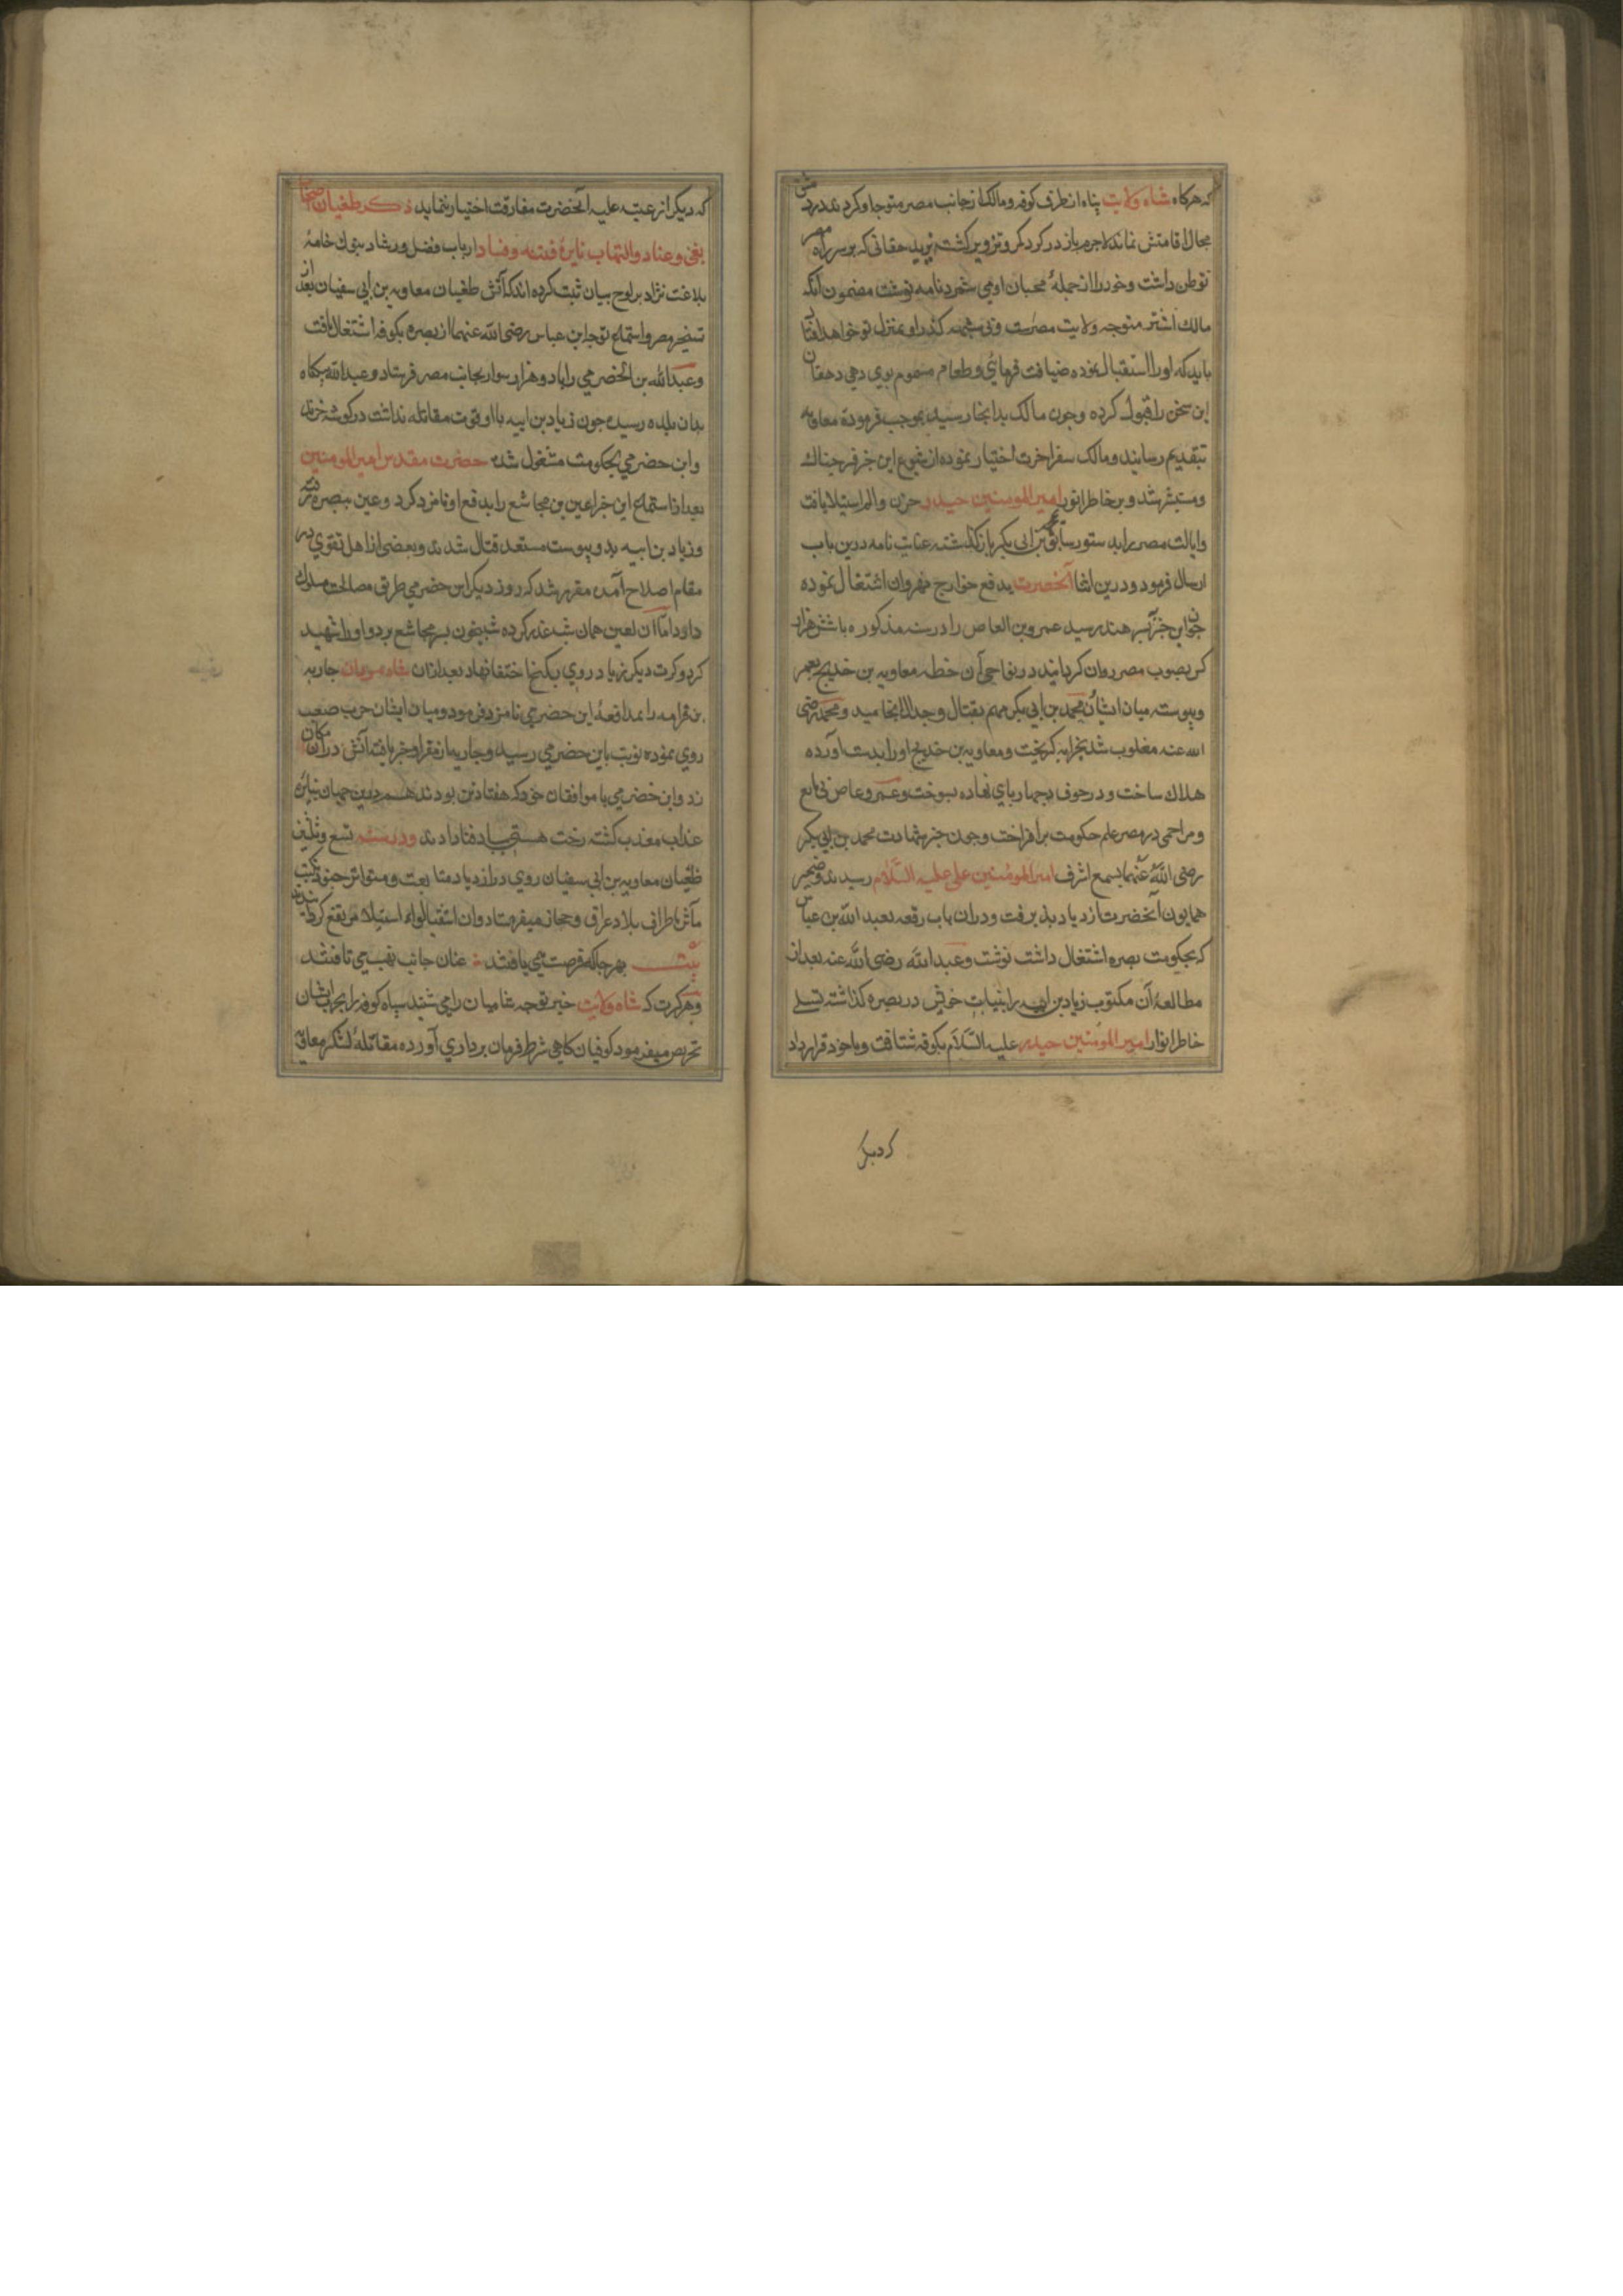 که هرکاه شاه ولایت پناه از طرف کوفه و مالک از جانب مصر متوجه او کردند در دمشق
مجال اقامتش نماند لاجرم باز در کرد مکر و تزویر کشته نزد دهقانی که بر سر راه مصر
توطن داشت و خود را از جمله محبان او می شمرد نامه نوشت مضمون آنکه
مالک اشتر متوجه ولایت مصرست و بی شبهه کذر او بمنزل تو خواهد افتاد
باید که او را استقبال نموده ضیافت فرمائی و طعام مسموم بوی دهی دهقان
این سخن را قبول کرده و چون مالک بدانجا رسید بموجب فرموده معاویه
بتقدیم رسانید و مالک سفر آخرت اختیار نموده از شیوع این خبر فرحناک
و مستبشر شد و بر خاطر انور امیر المومنین حیدر حزن و الم استیلا یافت
و ایالت مصر را بدستور سابق بمحمد بن ابی بکر باز کذاشته عنایت نامه درین باب
ارسال فرمود و درین اثنا آنحضرت بدفع خوارج نهروان اشتغال نموده
چون این خبر بپسر هند رسید عمرو بن العاص را در سنه مذکوره با شش هزار
کس بصوب مصر روان کردانید در نواحی آن خطه معاویه بن خدیج بعمر
و پیوست میان ایشان و محمد بن ابی بکر مهم بقتال و جدال انجامید و محمد رضی
الله عنه مغلوب شد بخرابه کریخت و معاویه بن خدیج او را بدست آورده
هلاک ساخت و در جوف چهارپای نهاده بسوخت و عمرو عاص بی مانع
و مزاحمی در مصر علم حکومت برافراخت و چون خبر شهادت محمد بن ابی بکر
رضی الله عنهما بسمع اشرف امیر المومنین علی علیه السلام رسید اندوه ضمیر
همایون آنحضرت ازدیاد پذیرفت و در آن باب رقعه بعبد الله بن عباس
که بحکومت بصره اشتغال داشت نوشت و عبد الله رضی الله عنه بعد از
مطالعه آن مکتوب زیاد بن ابیه را بنیابت خویش در بصره کذاشته تسلی
خاطر انوار امیر المومنین حیدر علیه السلام بکوفه شتافت و با خود قرار داد
که دیکر
که دیکر از عتبه علیه آنحضرت مفارقت اختیار ننماید ذکر طغیان اصحاب
بغی و عناد و التهاب نایره فتنه و فساد ارباب فضل و رشاد بنوک خامه
بلاغت نژاد بر لوح بیان ثبت کرده اند که آتش طغیان معاویه بن ابی سفیان بعد از
تسخیر مصر و استماع توجه ابن عباس رضی الله عنهما از بصره بکوفه اشتعال یافت
و عبد الله بن الحضرمی را با دو هزار سوار بجانب مصر فرستاد و عبد الله بیکاه
بدان بلده رسیده چون زیاد بن ابیه با او قوت مقاتله نداشت در کوشه خزید
و ابن حضرمی بحکومت مشغول شد حضرت مقدس امیر المومنین
بعد از استماع این خبر اعین بن مجاشع را بدفع او نامزد کرد و عین ببصره رفته
و زیاد بن ابیه بدو پیوست مستعد قتال شدند و بعضی از اهل تقوی در
مقام اصلاح آمده مقرر شد که روز دیکر ابن حضرمی طریق مصالحت مسلوک
دارد اما آن لعین همان شب غدر کرده شبیخون بسر مجاشع برد و او را شهید
کرد و کرت دیکر زیاد روی بکنج اختفا نهاد بعد از آن شاه مردان جاریه
بن قدامه را بمدافعه ابن حضرمی نامزد فرمود و میان ایشان حرب صعب
روی نموده نوبت بابن حضرمی رسید و جاریه از مقر او خبر یافته آتش در آن مکان
زد و ابن حضرمی با موافقان خود که هفتاد تن بودند هم درین جهان بنایره
عذاب معذب کشته رخت هستی بباد فنا دادند و در سنه تسع و ثلثین
طغیان معاویه بن ابی سفیان روی در ازدیاد متابعت و متواتر جنود نکبت
مآثر باطراف بلاد عراق و حجاز میفرستاد و آن اشقیا لواء استیلا مرتفع کردانیدند
بیت بهر جا که فرصت می یافتند عنان جانب نهب می تافتند
و هر کرت که شاه ولایت خبر توجه شامیان را می شنید سپاه کوفه را بحرب ایشان
تحریص میفرمود کوفیان کاهی شرط فرمان برداری آورده مقاتله لشکر معاویه